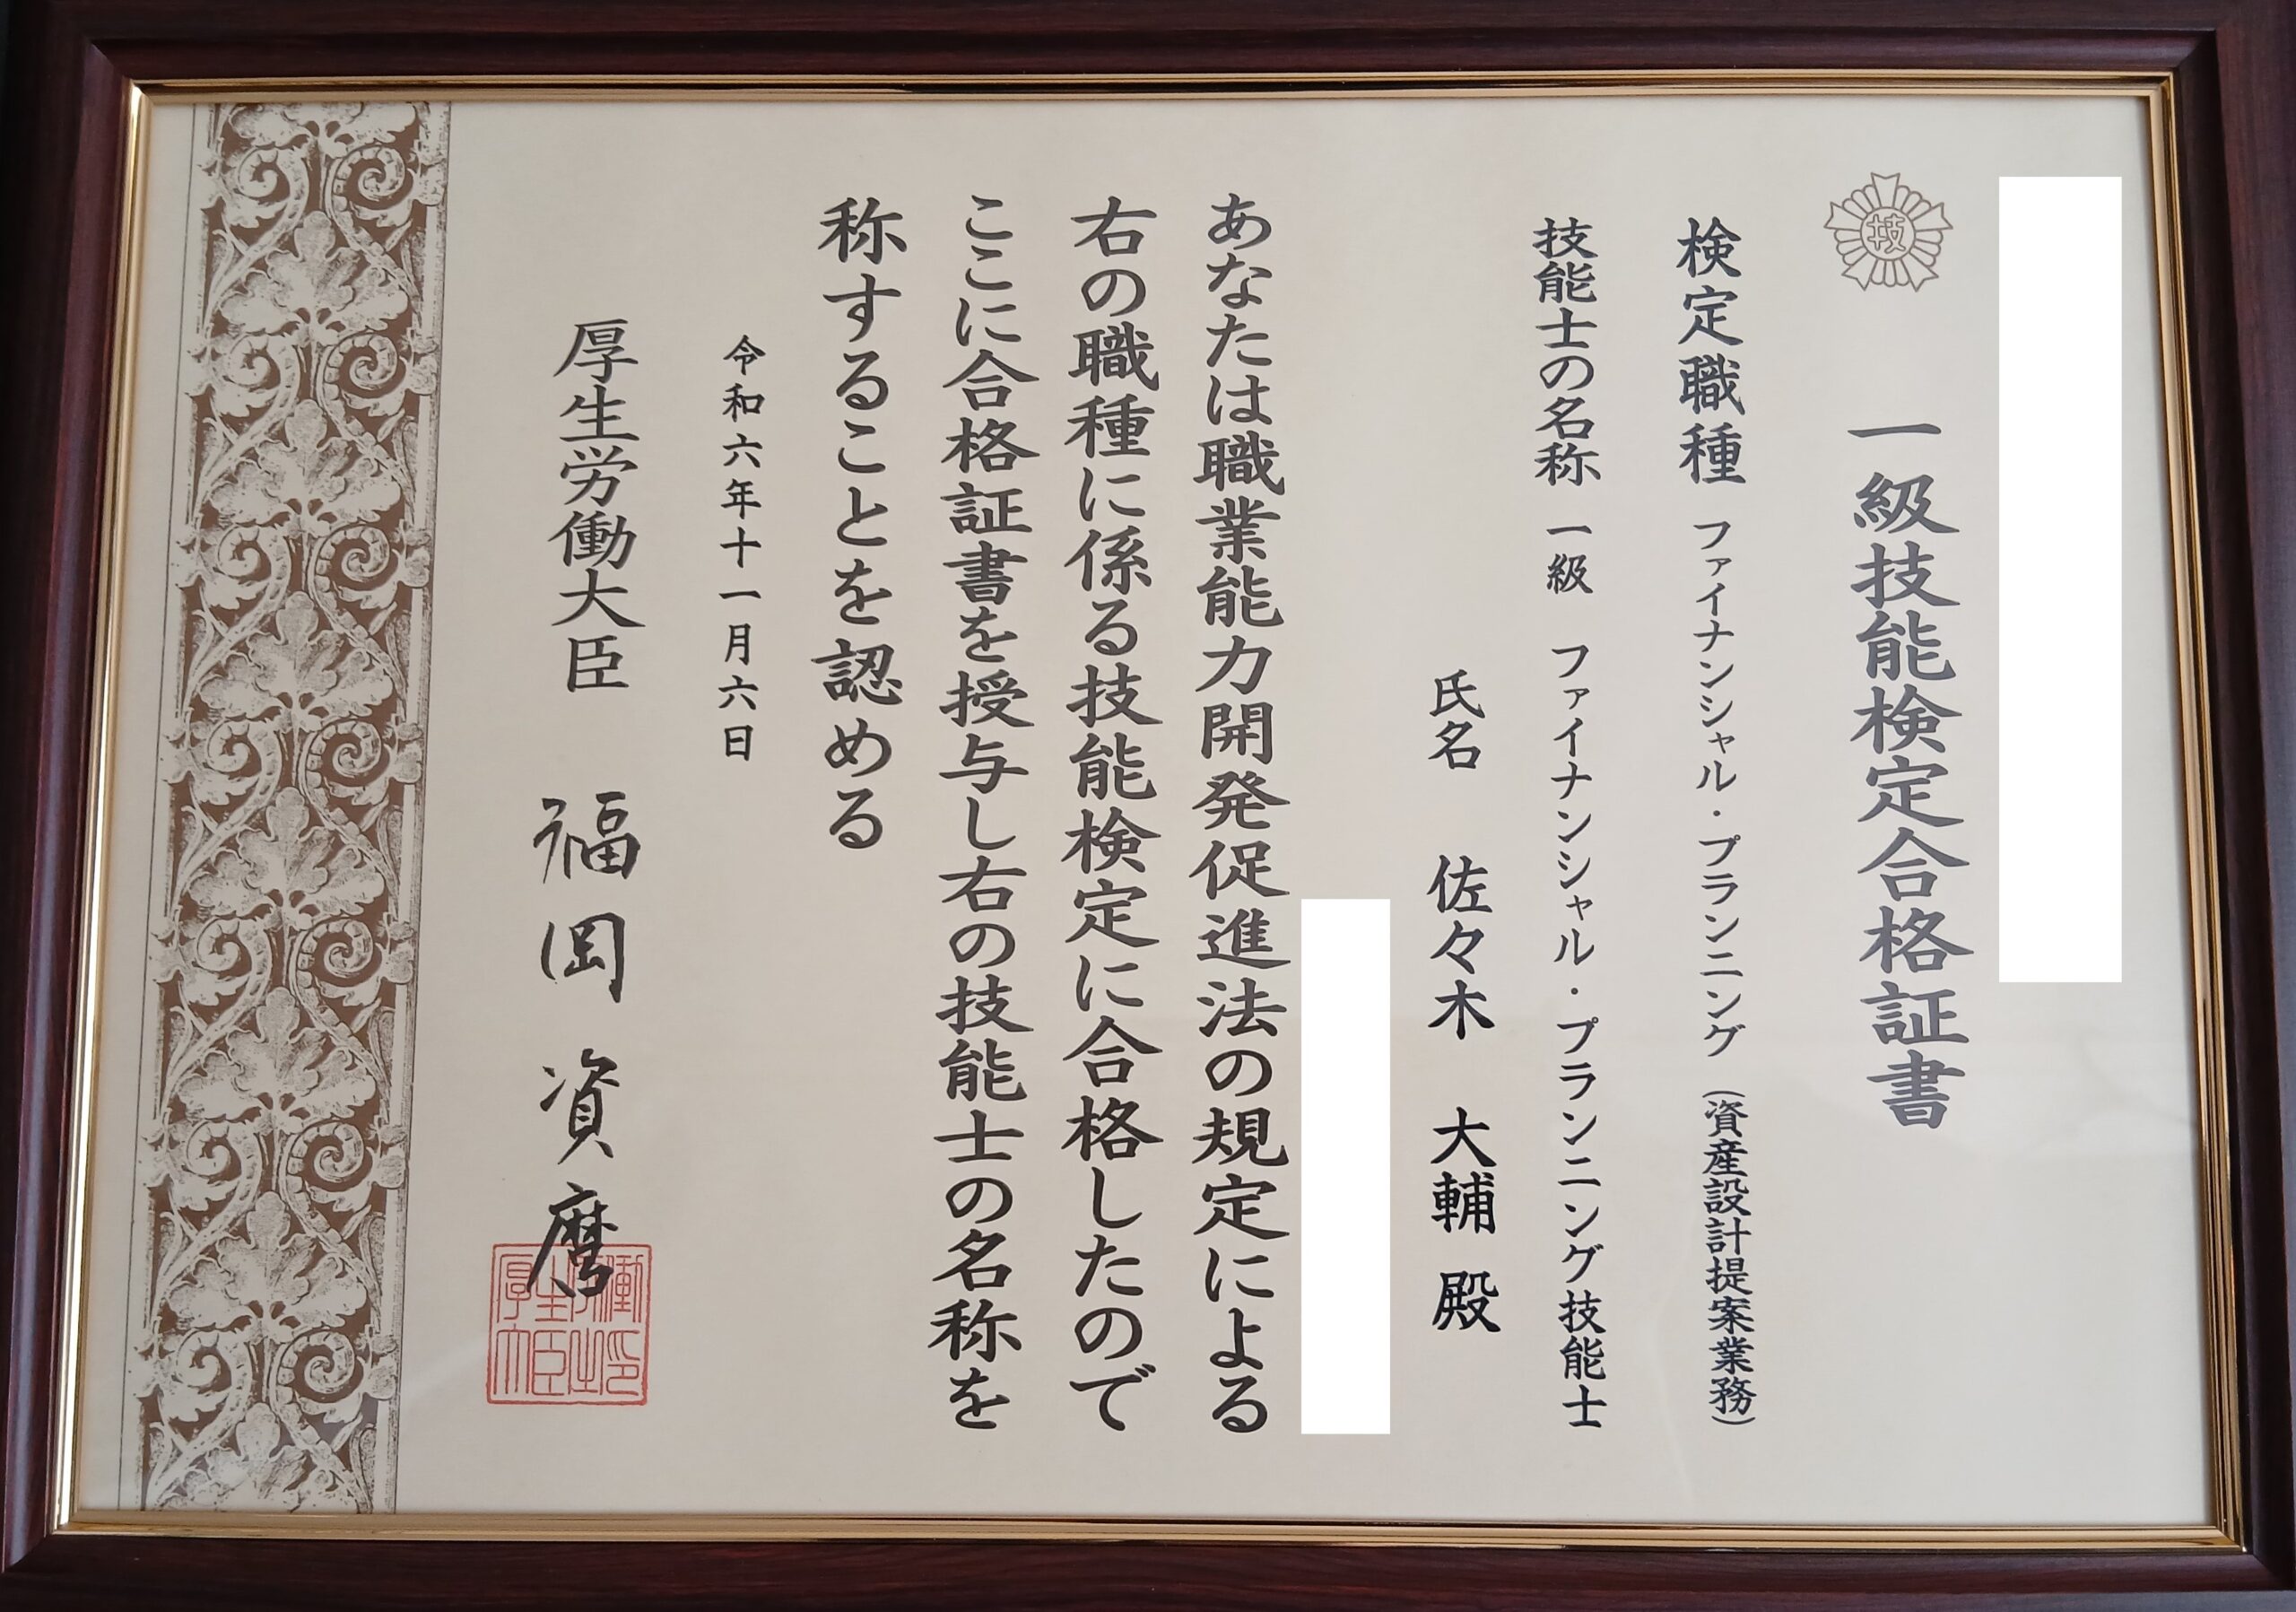 一級技能検定合格証書
技
検定職種 ファイナンシャル・プランニング (資産設計提案業務)
技能士の名称 一級 ファイナンシャル・プランニング技能士
氏名 佐々木 大輔 殿
あなたは職業能力開発促進法の規定による
右の職種に係る技能検定に合格したので
ここに合格証書を授与し右の技能士の名称を
称することを認める
令和六年十一月六日
厚生労働大臣 福岡資麿
厚生労働大臣之印